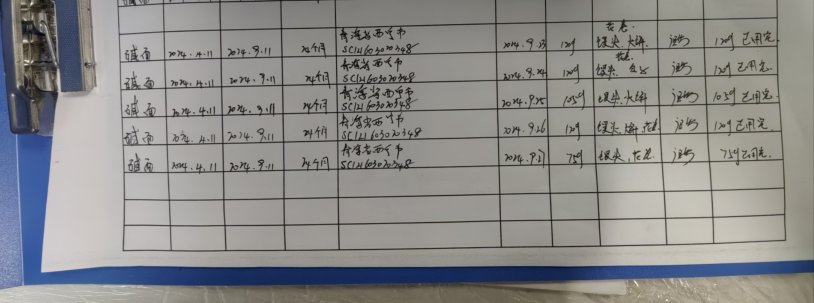 花卷
碱面 2024.4.11 2024.9.11 24个月 青海省西宁市 SC12163020348 2024.9.23 120g 馒头.大饼 120g 已用完.
花卷.
碱面 2024.4.11 2024.9.11 24个月 青海省西宁市 SC12163020348 2024.9.24 120g 馒头 120g 已用完.
碱面 2024.4.11 2024.9.11 24个月 青海省西宁市 SC12163020348 2024.9.25 105g 馒头.大饼 105g 已用完.
碱面 2024.4.11 2024.9.11 24个月 青海省西宁市 SC12163020348 2024.9.26 120g 馒头 饼 花卷. 120g 已用完.
碱面 2024.4.11 2024.9.11 24个月 青海省西宁市 SC12163020348 2024.9.27 75g 馒头,花卷 75g 已用完.